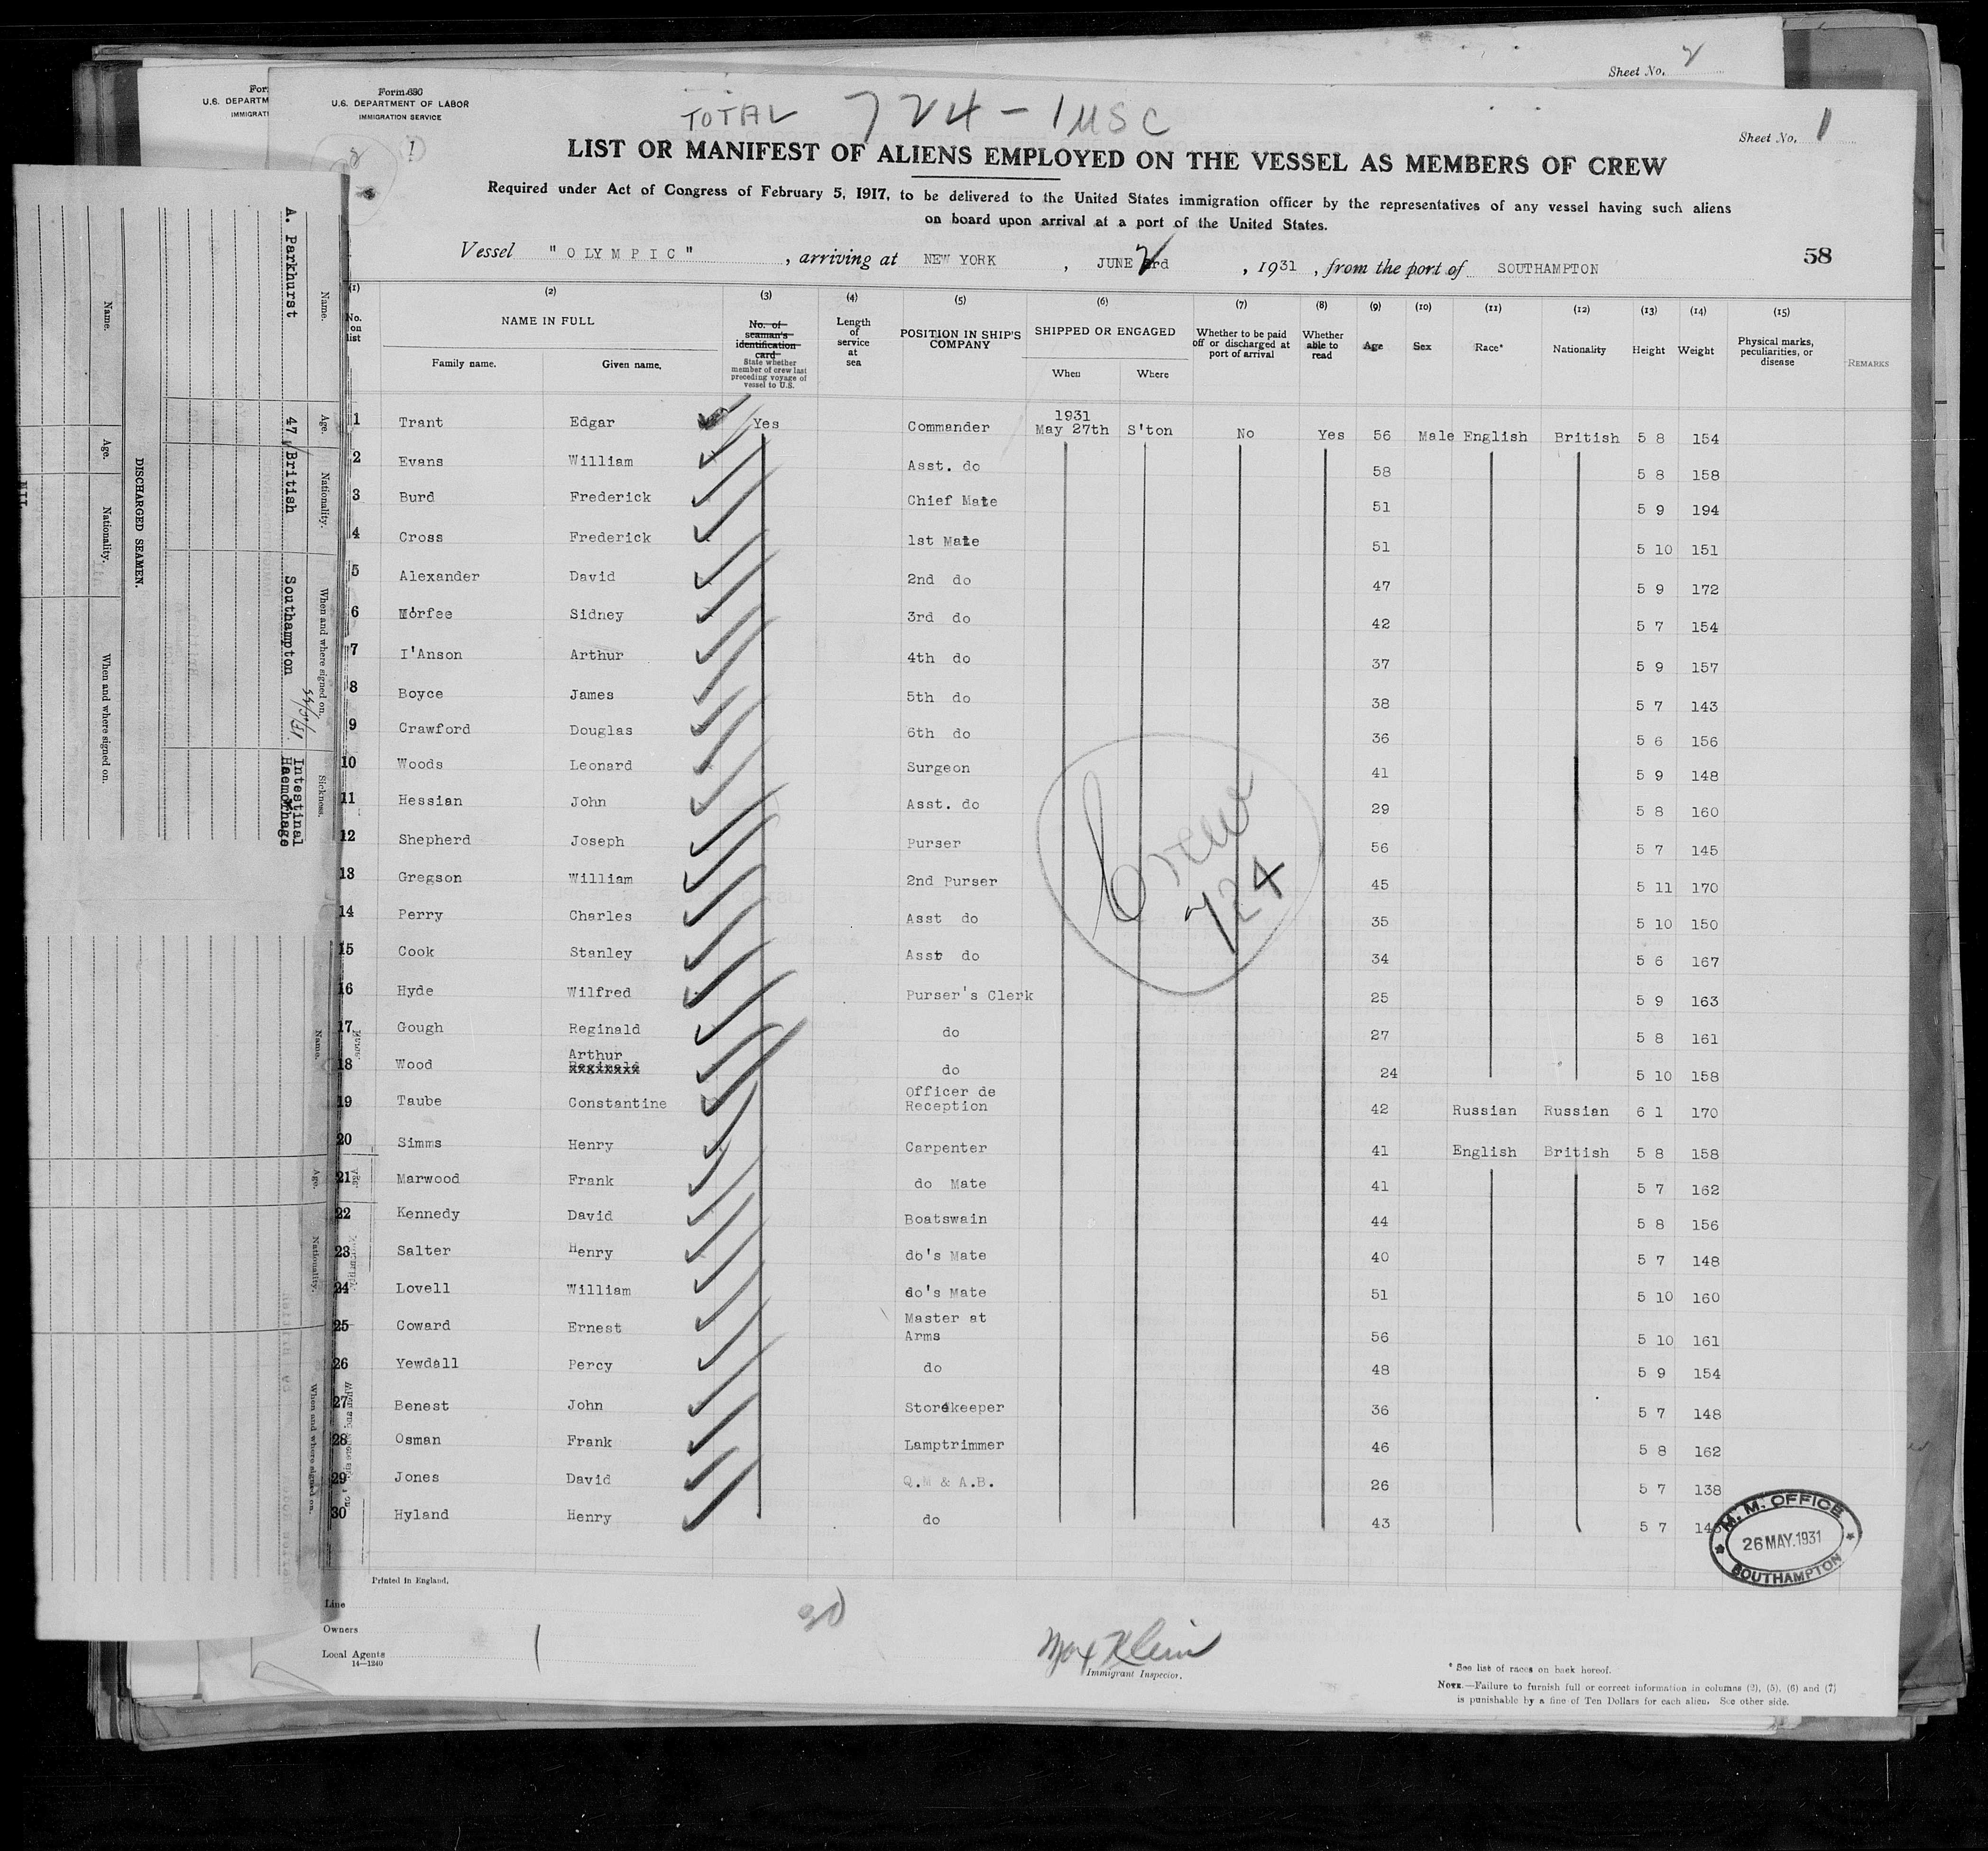 Sheet No. 2
Form 680
U.S. DEPARTMENT OF LABOR
IMMIGRATION SERVICE
TOTAL 724 - 1 USC
Sheet No. 1
LIST OR MANIFEST OF ALIENS EMPLOYED ON THE VESSEL AS MEMBERS OF CREW
Required under Act of Congress of February 5, 1917, to be delivered to the United States immigration officer by the representatives of any vessel having such aliens
on board upon arrival at a port of the United States.
Vessel "OLYMPIC", arriving at NEW YORK, JUNE 2 rd, 1931, from the port of SOUTHAMPTON
58
(1) (2) (3) (4) (5) (6) (7) (8) (9) (10) (11) (12) (13) (14) (15)
No. on list NAME IN FULL Family name. Given name. No. of seaman's identification card State whether member of crew last preceding voyage of vessel to U.S. Length of service at sea POSITION IN SHIP'S COMPANY SHIPPED OR ENGAGED When Where Whether to be paid off or discharged at port of arrival Whether able to read Age Sex Race* Nationality Height Weight Physical marks, peculiarities, or disease REMARKS
1931
1 Trant Edgar Yes Commander May 27th S'ton No Yes 56 Male English British 5 8 154
2 Evans William Asst. do 58 5 8 158
3 Burd Frederick Chief Mate 51 5 9 194
4 Cross Frederick 1st Mate 51 5 10 151
5 Alexander David 2nd do 47 5 9 172
6 Morfee Sidney 3rd do 42 5 7 154
7 I'Anson Arthur 4th do 37 5 9 157
8 Boyce James 5th do 38 5 7 143
9 Crawford Douglas 6th do 36 5 6 156
10 Woods Leonard Surgeon 41 5 9 148
11 Hessian John Asst. do 29 5 8 160
12 Shepherd Joseph Purser 56 5 7 145
13 Gregson William 2nd Purser 45 5 11 170
14 Perry Charles Asst do 35 5 10 150
15 Cook Stanley Asst do 34 5 6 167
16 Hyde Wilfred Purser's Clerk 25 5 9 163
17 Gough Reginald do 27 5 8 161
18 Wood Arthur Reginald do 24 5 10 158
19 Taube Constantine Officer de Reception 42 Russian Russian 6 1 170
20 Simms Henry Carpenter 41 English British 5 8 158
21 Marwood Frank do Mate 41 5 7 162
22 Kennedy David Boatswain 44 5 8 156
23 Salter Henry do's Mate 40 5 7 148
24 Lovell William do's Mate 51 5 10 160
25 Coward Ernest Master at Arms 56 5 10 161
26 Yewdall Percy do 48 5 9 154
27 Benest John Storekeeper 36 5 7 148
28 Osman Frank Lamptrimmer 46 5 8 162
29 Jones David Q.M & A.B. 26 5 7 138
30 Hyland Henry do 43 5 7
Crew
724
M. M. OFFICE
26 MAY. 1931
SOUTHAMPTON
Printed in England.
Line
Owners
Local Agents
14—1240
30
Max Klein
Immigrant Inspector.
* See list of races on back hereof.
NOTE.—Failure to furnish full or correct information in columns (2), (5), (6) and (7)
is punishable by a fine of Ten Dollars for each alien. See other side.
DISCHARGED SEAMEN.
Name. Age. Nationality. When and where signed on. Sickness.
A. Parkhurst 47 British Southampton Intestinal Haemorhage
Name. Age. Nationality. When and where signed on.
Name. Age. Nationality. When and where signed on.